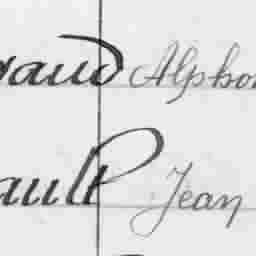 raud Alphon
ault Jean